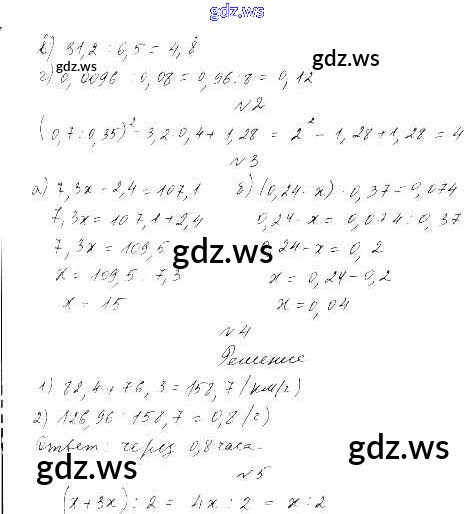 gdz.ws
в) 31,2 : 6,5 = 4,8
gdz.ws
г) 0,0096 : 0,08 = 0,96 : 8 = 0,12
gdz.ws
№2
(0,7 : 0,35)² - 3,2 · 0,4 + 1,28 = 2² - 1,28 + 1,28 = 4
№3
а) 7,3x - 2,4 = 107,1 б) (0,24 - x) · 0,37 = 0,074
7,3x = 107,1 + 2,4 0,24 - x = 0,074 : 0,37
7,3x = 109,5 0,24 - x = 0,2
gdz.ws
x = 109,5 : 7,3 x = 0,24 - 0,2
x = 15 x = 0,04
№4
Решение
1) 82,4 + 76,3 = 158,7 (км/ч)
2) 126,96 : 158,7 = 0,8 (ч)
Ответ: через 0,8 часа.
gdz.ws gdz.ws
№5
(x + 3x) : 2 = 4x : 2 = x : 2